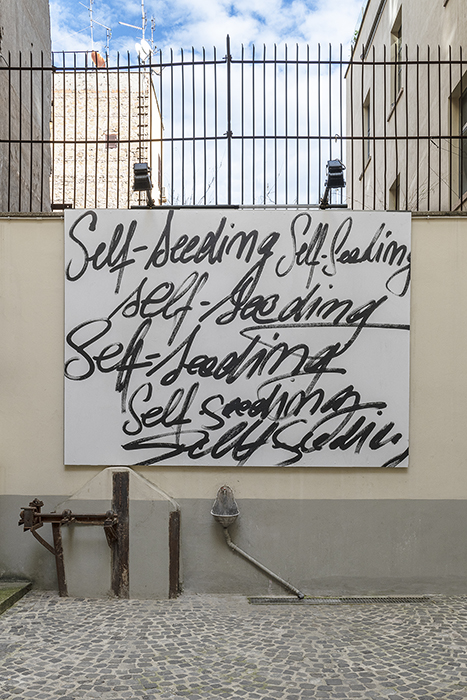 Self-Seeding Self-Seeding
self-Seeding
Self-Seeding
Self Seeding
Self Seeding